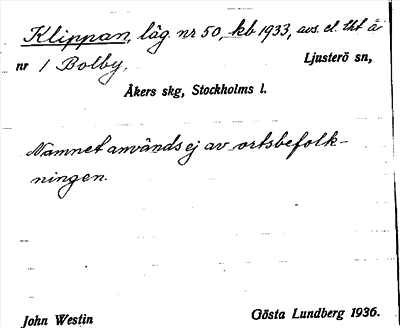 Klippan, läg. nr 50, kb 1933, avs. d. tht å
nr 1 Bolby. Ljusterö sn,
Åkers skg, Stockholms l.
Namnet används ej av ortsbefolk-
ningen.
John Westin Gösta Lundberg 1936.